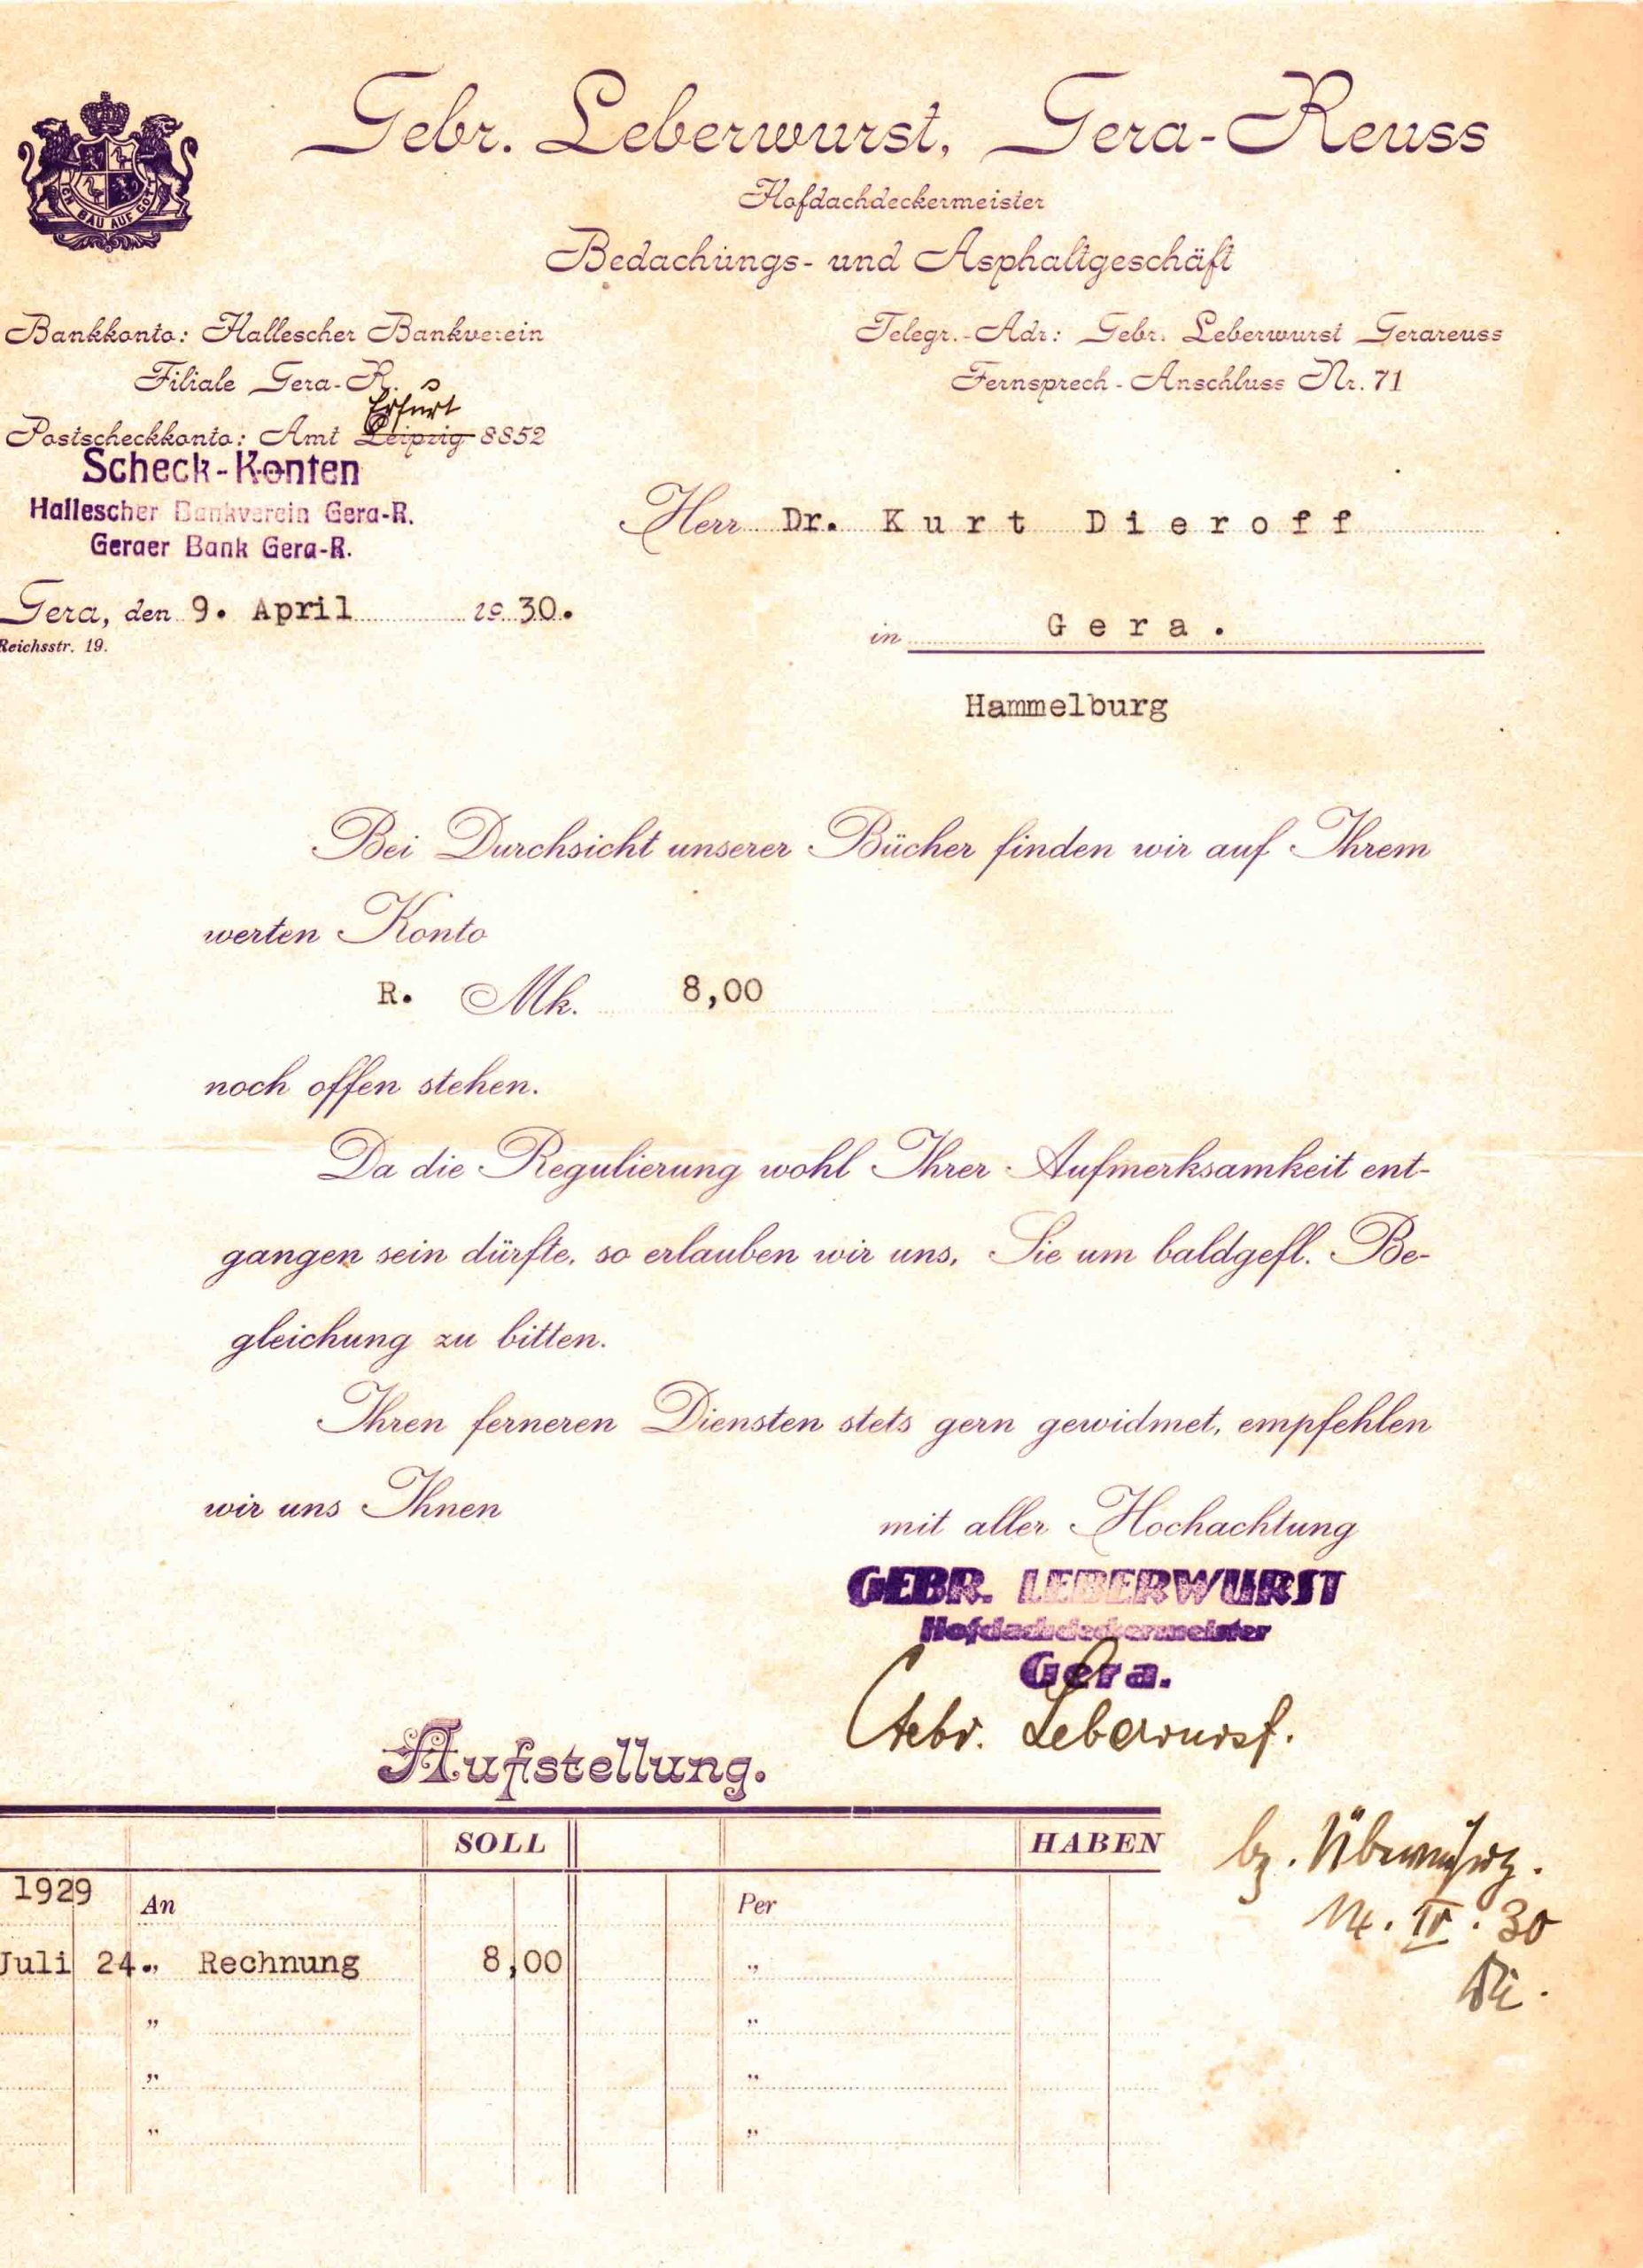 Gebr. Leberwurst, Gera-Reuss
Hofdachdeckermeister
Bedachungs- und Asphaltgeschäft
ICH BAU AUF GOTT
Bankkonto: Hallescher Bankverein
Filiale Gera-R.
Erfurt
Postscheckkonto: Amt Leipzig 8852
Scheck-Konten
Hallescher Bankverein Gera-R.
Geraer Bank Gera-R.
Telegr.-Adr: Gebr. Leberwurst Gerareuss
Fernsprech-Anschluss Nr. 71
Herr Dr. Kurt Dieroff
Gera, den 9. April 1930.
Reichsstr. 19.
in Gera.
Hammelburg
Bei Durchsicht unserer Bücher finden wir auf Ihrem
werten Konto
R. Mk. 8,00
noch offen stehen.
Da die Regulierung wohl Ihrer Aufmerksamkeit ent-
gangen sein dürfte, so erlauben wir uns, Sie um baldgefl. Be-
gleichung zu bitten.
Ihren ferneren Diensten stets gern gewidmet, empfehlen
wir uns Ihnen
mit aller Hochachtung
GEBR. LEBERWURST
Hofdachdeckermeister
Gera.
Gebr. Leberwurst.
Aufstellung.
SOLL HABEN
1929 An Per
Juli 24. " Rechnung 8,00 "
" "
" "
" "
14. IV. 30